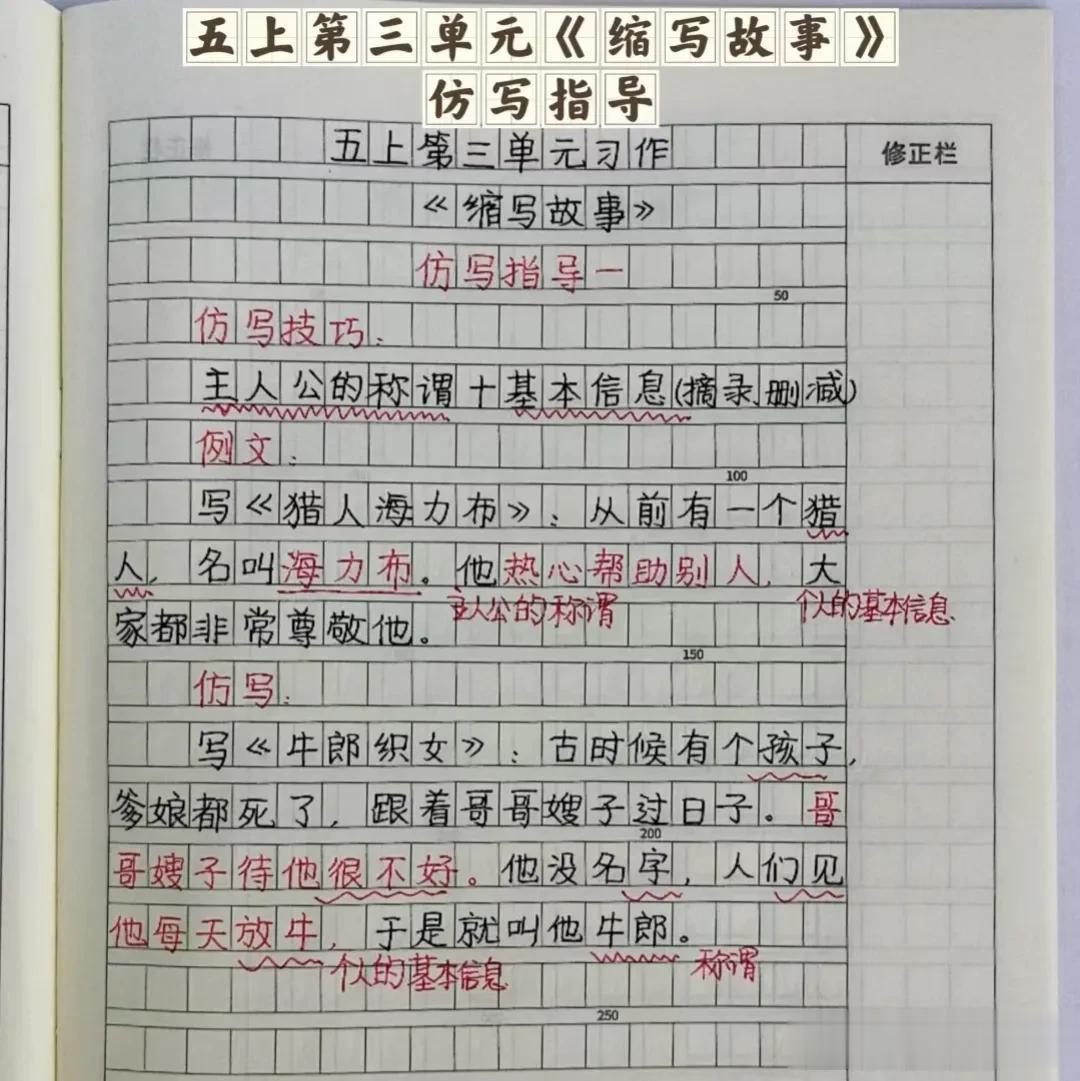 五上第三单元《缩写故事》
仿写指导
五上第三单元习作
修正栏
《缩写故事》
仿写指导一
50
仿写技巧：
主人公的称谓十基本信息(摘录、删减)
例文：
100
写《猎人海力布》：从前有一个猎
人，名叫海力布。他热心帮助别人，大
主人公的称谓 个人的基本信息
家都非常尊敬他。
150
仿写：
写《牛郎织女》：古时候有个孩子，
爹娘都死了，跟着哥哥嫂子过日子。哥
200
哥嫂子待他很不好。他没名字，人们见
他每天放牛，于是就叫他牛郎。
个人的基本信息 称谓
250